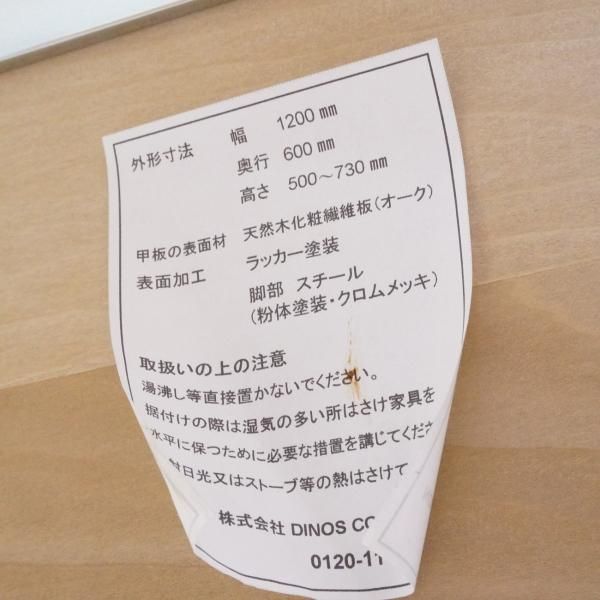 外形寸法 幅 1200㎜
奥行 600㎜
高さ 500～730㎜
甲板の表面材 天然木化粧繊維板(オーク)
表面加工 ラッカー塗装
脚部 スチール
(粉体塗装・クロムメッキ)
取扱いの上の注意
湯沸し等直接置かないでください。
据付けの際は湿気の多い所はさけ家具を
水平に保つために必要な措置を講じてくださ
射日光又はストーブ等の熱はさけて
株式会社 DINOS CO
0120-11